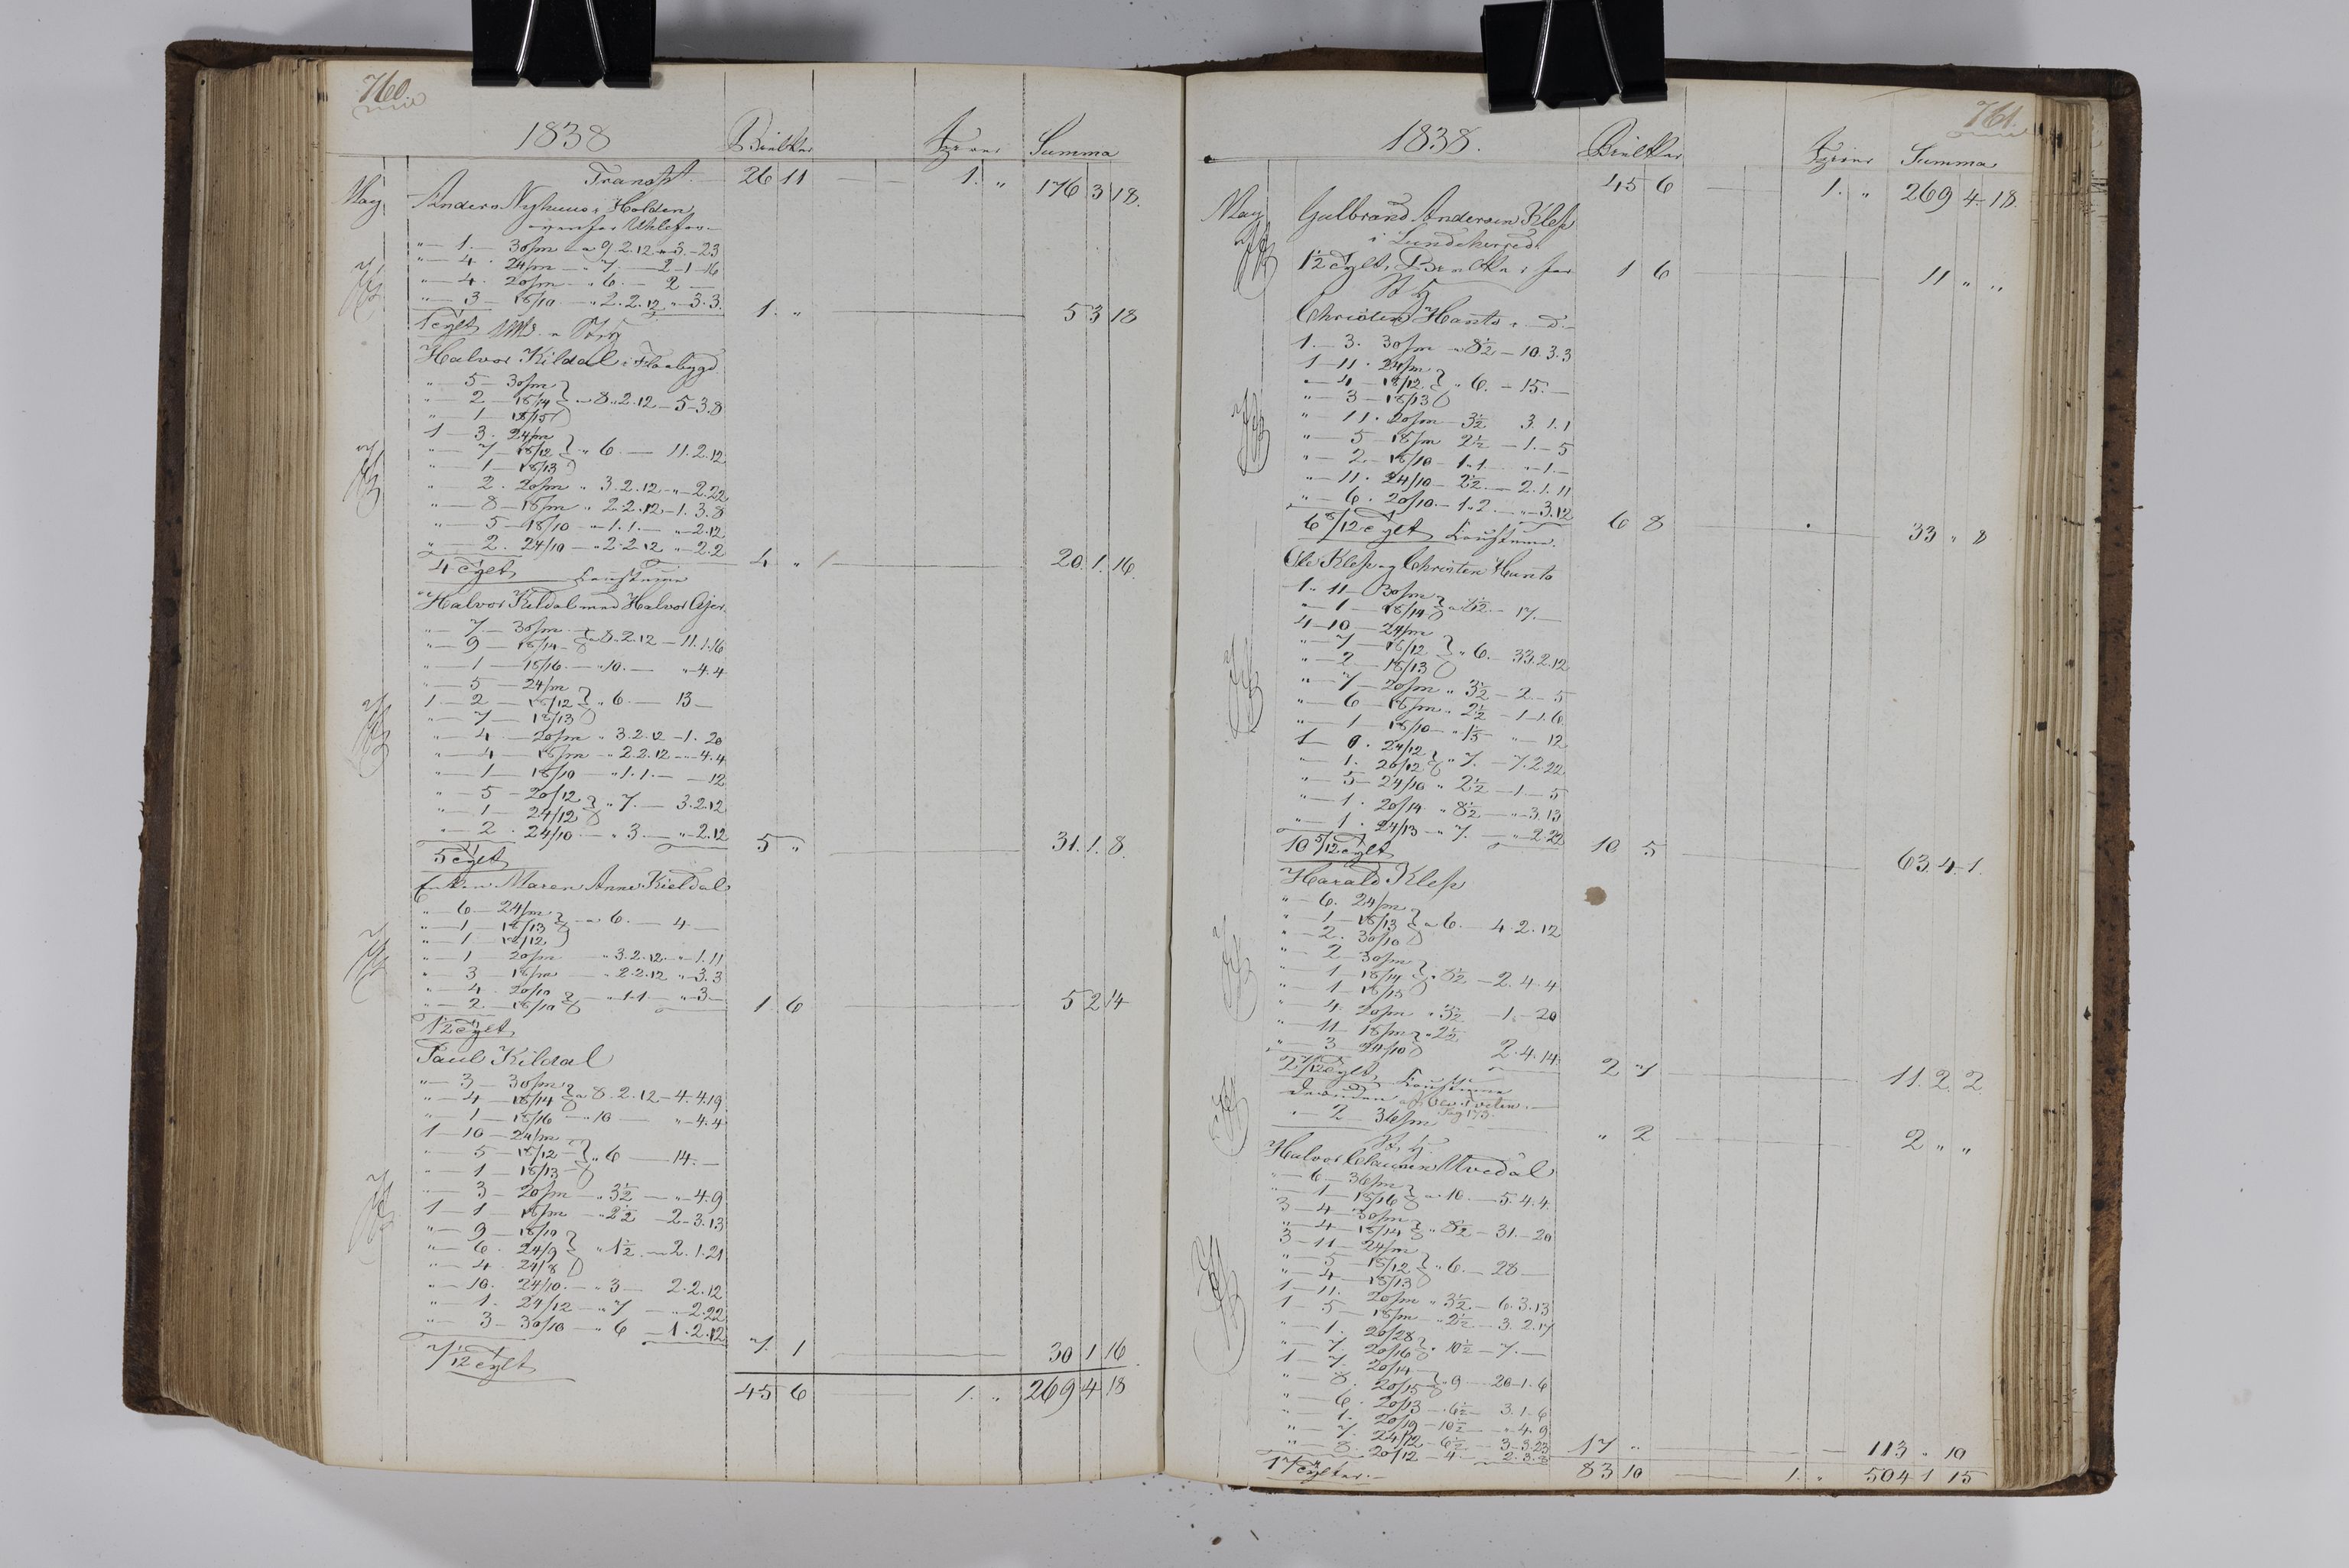 760.
1838 Bielker Summa
Transpt. 26 11 — 1. " 176 3 18.
May Anders Nyhuus i Holden
ovenfor Uhlefos —
" — 1. — 30/m — a 9.2.12 " 3 — 23
" — 4. 24/m — " 7. — 2 — 1 — 16
" — 4. 20/m — " 6. — 2 —
" — 3 — 18/10 — " 2.2.12 " — 3.3.
1 cylt 1. " — 5 3 18
Halvor Kildal i Flaabygd.
" — 5 — 30/m
" — 2 — 18/14 } a 8.2.12 — 5 — 3.8
" — 1 — 18/15
1 — 3. 24/m
" — 7 — 18/12 } " 6. — 11.2.12
" — 1 — 18/13
" — 2. 20/m " 3.2.12 — " — 2.22
" — 8 — 18/m " 2.2.12 — 1.3.8
" — 5 — 18/10 — " 1.1. — " — 2.12
" — 2. 24/10 — " 2.2.12 " — 2.2
4 cylt 4 " — 20. 1. 16.
Halvor Kildal med Halvor
" — 7. — 30/m
" — 9 — 18/14 } a 8.2.12 — 11.1.16
" — 1 — 18/16. — " 10. — " — 4.4
" — 5 — 24/m
1. — 2 — 18/12 } " 6 — 13 —
" — 7 — 18/13
" — 4. — 20/m " 3.2.12 — 1. 20
" — 4 — 18/m — " 2.2.12 — " — 4.4
" — 1 — 18/10 — " 1.1. — — 12
" — 5 — 20/12
" — 1 — 24/12 } " 7. — 3.2.12
" — 2. 24/10 — " 3. — " — 2.12
5 cylt 5 " — 31. 1. 8.
Enken Maren Anne Kieldal
" — 6 — 24/m
" — 1 — 18/13 } — a 6. — 4. —
" — 1 — 18/12
" — 1 — 20/m — " 3.2.12. — " — 1.11
" — 3 — 18/m — " 2.2.12 " — 3.3
" — 4. 20/10
" — 2. — 18/10 } — " 1.1 — " — 3 —
1½ cylt 1 6 — 5 2 14
Paul Kildal
" — 3 — 30/m
" — 4 — 18/14 } a 8.2.12 — 4.4.19
" — 1 — 18/16 — " 10 — " — 4.4
1 — 10 — 24/m
" — 5 — 18/12 } " 6 — 14. —
" — 1 — 18/13
" — 3 — 20/m — " 3½ — " — 4.9
1 — 1 — 18/m — " 2½ — 2 — 3.13
" — 9 — 18/10
" — 6. 24/9 } " 1½ — " 2.1.21
" — 4. 24/8
" — 10. 24/10. — " 3 — 2.2.12
" — 1. 24/12 — " 7 — " — 2.22
" — 3 — 30/10 — " 6 — 1.2.12
7 1/12 cylt 7. 1 — 30 1 16
45 6 — 1. " 269 4 18
761.
1838. Bielker Summa
45 6 — 1. " 269 4 18
May Gulbrand Andersen Klep
i Lundeherred.
1½ cylt. 1 6 — 11 " "
Christen Hanto i d. —
1. — 3. 30/m — a 8½ — 10.3.3
1 — 11. 24/m
" — 4 — 18/12 } " 6. — 15. —
" — 3 — 18/13
" — 11. 20/m — 3½ 3.1.1
" — 5 — 18/m 2½ — 1. — 5
" — 2. — 18/10 — 1.1. " — 1. —
" — 11. 24/10 — 2½ — 2.1.11
" — 6. 20/10 — 1.2 — " — 3.12
6 8/12 cylt 6 8 — 33 " 8
Ole Klep og Christen Hanto
1. 11 — 30/m
" — 1 — 18/14 } a 8½ — 17. —
4 — 10 — 24/m
" — 7 — 18/12 } " 6. — 33.2.12
" — 2 — 18/13
" — 7 — 20/m " 3½ — 2 — 5
" — 6 — 18/m " 2½ — 1 — 1.6
" — 1 — 18/10 — " — 12
24/12
" — 1. 20/12 } " 7. — 7.2.22
" — 5 — 24/10 " 2½ — 1. — 5
" — 1. 20/14 " 8½ — " — 3.13
" — 1. 24/13 — " 7. — " — 2.22
10 5/12 cylt 10 5 — 63. 4 1.
Harald Klep
" — 6. 24/m
" — 1 — 18/13 } a 6. — 4.2.12
" — 2. 30/10
" — 2 — 30/m
" — 1 — 18/14 } " 8½ — 2.4.4
" — 1 — 18/15
" — 4. 20/m " 3½ — 1. — 20
" — 11 — 18/m } " 2½
" — 3 24/10 2.4.14
2 7/12 cylt 2 7 — 11. 2 2
" — 2 — 36/m Pag 173.
" 2 — 2 " "
Halvor Clausen Utvedal
" — 6 — 36/m
" — 1 — 18/16 } " 10. — 5.4.4.
3 — 4 — 30/m
" — 4 — 18/14 } " 8½ — 31. — 20
3 — 11 — 24/m
" — 5 — 18/12 } " 6. — 28 —
" — 4 — 18/13
1 — 11. 20/m " 3½ — 6.3.13
1 — 5 — 18/m — " 2½ — 3. 2.17
" — 1. 20/28
" — 7. 20/16 } " 10½ — 7. —
1 — 7. 20/14
" — 8. 20/15 } " 9 — 20 — 1.6
" — 6. 20/13 — " 6½ — 3.1 — 6
" — 1. 20/19 — 10½ — " 4.9
" — 7. 24/12 — 6½ — 3 — 3.23
" — 8. 20/12 — 4. — 2.3.8
17 cylter. — 17 " — 113 " 10
83 10 — 1. " 504 1 15